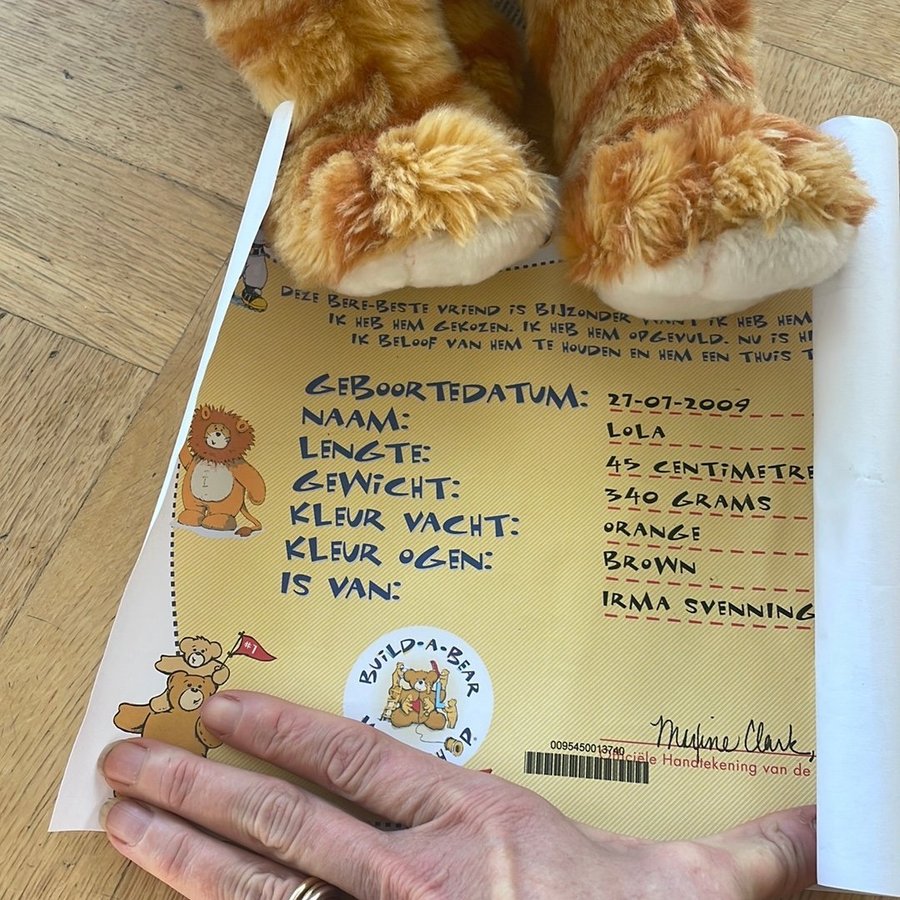 DEZE BERE-BESTE VRIEND IS BIJZONDER WANT IK HEB HEM
IK HEB HEM GEKOZEN. IK HEB HEM OPGEVULD. NU IS
IK BELOOF VAN HEM TE HOUDEN EN HEM EEN THUIS
GEBOORTEDATUM: 27-07-2009
NAAM: LOLA
LENGTE: 45 CENTIMETRE
GEWICHT: 340 GRAMS
KLEUR VACHT: ORANGE
KLEUR OGEN: BROWN
IS VAN: IRMA SVENNING
#1
BUILD-A-BEAR
Maxine Clark
0095450013740
Officiële Handtekening van de